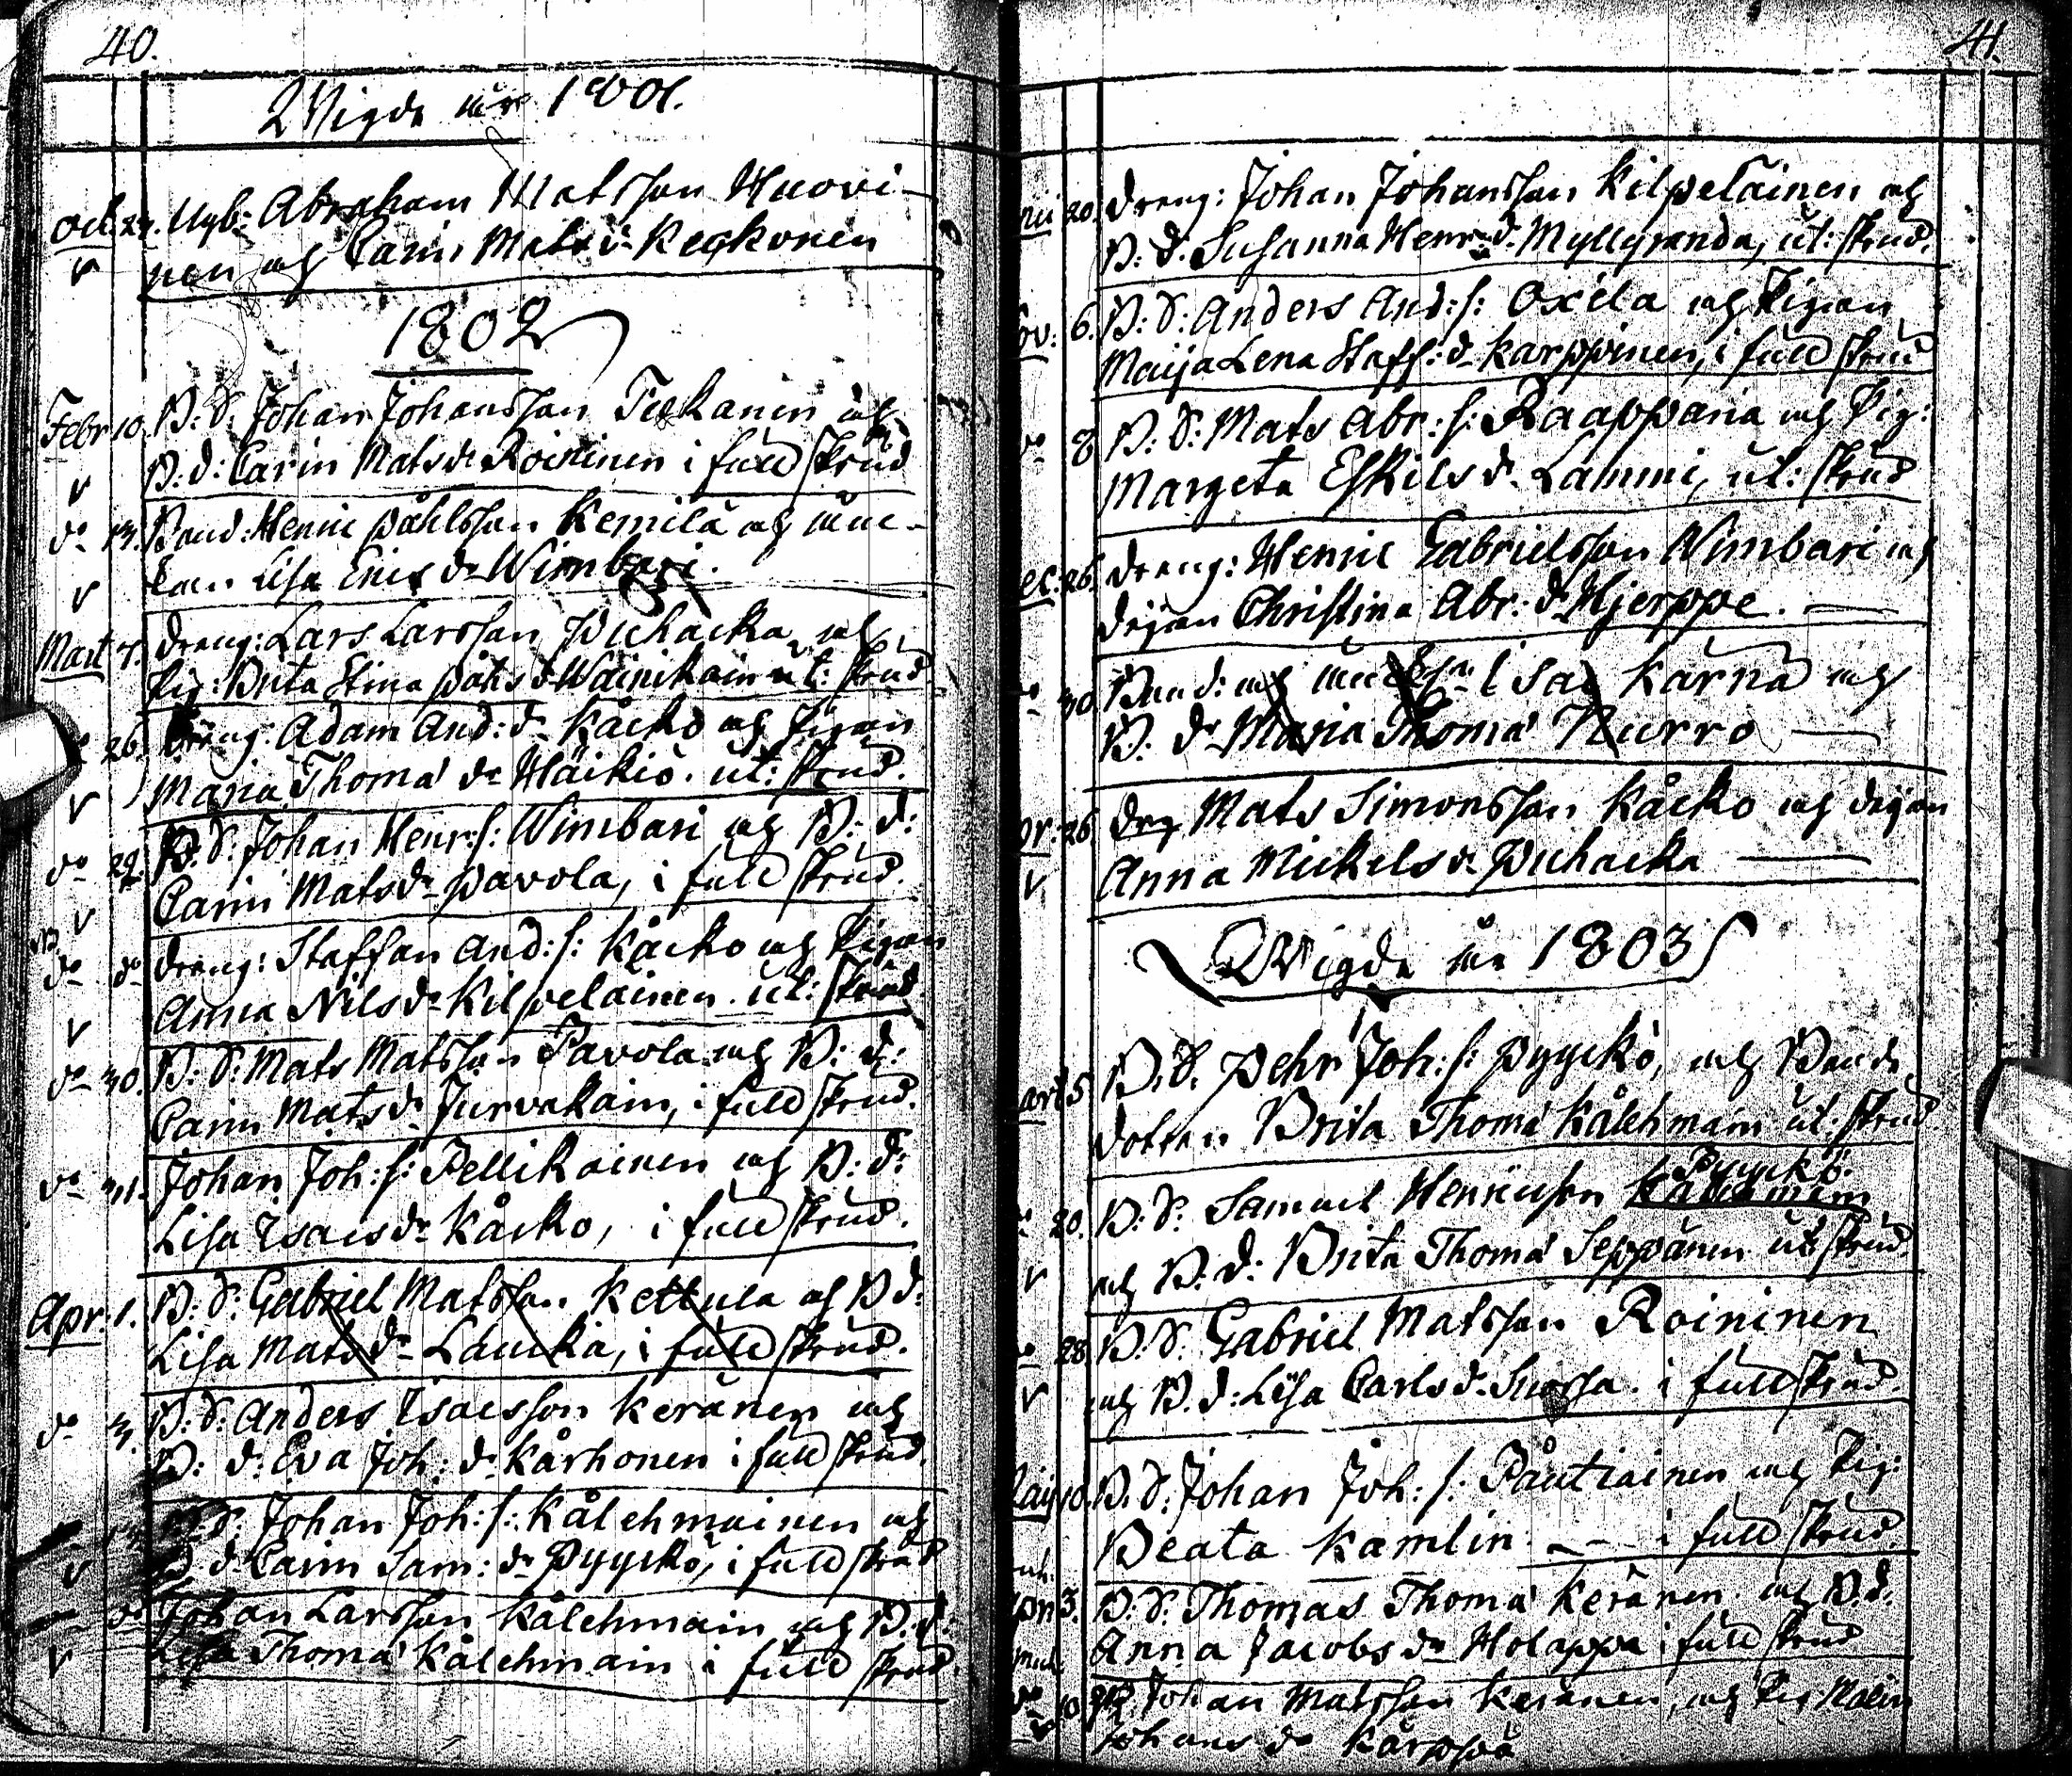 40.
Wigde år 1801.
Oct. 27. Nyb: Abraham Matsson Huovi-
nen och Carin Mats dr Keckonen
1802
Febr 10. B: S: Johan Johansson Tuckanen och
B: d: Carin Mats dr Roininen i full skrud
do 13. Bond: Henric Påhlsson Kemilä och
Lisa Erics dr Wimbari.
Mart 7. Dreng: Lars Larsson Puhacka och
Pig: Brita Stina Påls dr Wäinikain ut: skrud
26. Dreng: Adam And: dr Kåcko och Pigan
Maria Thomæ dr Häikiö. ut: skrud.
do 29. B: S: Johan Henr: s: Wimbari och B: d:
Carin Mats dr Pavola, i full skrud.
do do Dreng: Staffan And: s: Kåcko och Pigan
Anna Nils dr Kilpeläinen ut: skrud.
do 30. B: S: Mats Matsson Pavola och B: d:
Carin Mats dr Jurvakain, i full skrud.
do 31. Johan Joh: s: Pellikainen och B: d:
Lisa Isacs dr Kåcko, i full skrud.
Apr: 1. B: S: Gabriel Matsson Kettula och B d:
Lisa Mats dr Laucka, i full skrud.
do 3. B: S: Anders Isacsson Keränen och
B: d: Eva Joh: dr Kårhonen i full skrud.
B: S: Johan Joh: s: Kålehmainen och
B d: Carin Sam: dr Pyyckö, i full skrud
do Johan Larsson Kålehmain och B: d:
Lisa Thomæ Kålehmain i full skrud.
41.
20. Dreng: Johan Johansson Kilpeläinen och
B: d: Susanna Henr: d: Myllyranda, ut: skrud.
ov: 6. B: S: Anders And: s: Oxila och Pigan
Maija Lena Staff: dr Karppinen, i full skrud
do 8 B: S: Mats Abr: s: Raappana och Pig:
Margeta Eskils dr Lammi, ut: skrud
ec: 26. Dreng: Henric Gabrielsson Wimbari och
Pigan Christina Abr: dr Hjerppe.
30. Isac Kärnä och
B: dr Maria Thomæ Nurro
pr: 26 Drg Mats Simonsson Kåcko och Pigan
Anna Mickels dr Puhacka
Wigde år 1803
art 5 B: S. Pehr Joh: s: Pyyckö, och Bonde
dotren Brita Thomæ Kålehmain ut: skrud.
Pyyckö.
20. B: S: Samuel Henricsson Kålehmain
och B: d: Brita Thomæ Seppänen ut skrud.
do 28 B: S: Gabriel Matsson Roininen
och B. d: Lisa Carls dr Suossa. i full skrud.
Maij 10. B. S: Johan Joh: s: Pautiainen och Pig:
Beata Kamlin i full skrud.
3. B: S: Thomas Thomæ Keränen och B. d:
Anna Jacobs dr Holappa i full skrud
do 10 Johan Matsson Keränen, och Pig Malin
Johans dr Kårppä